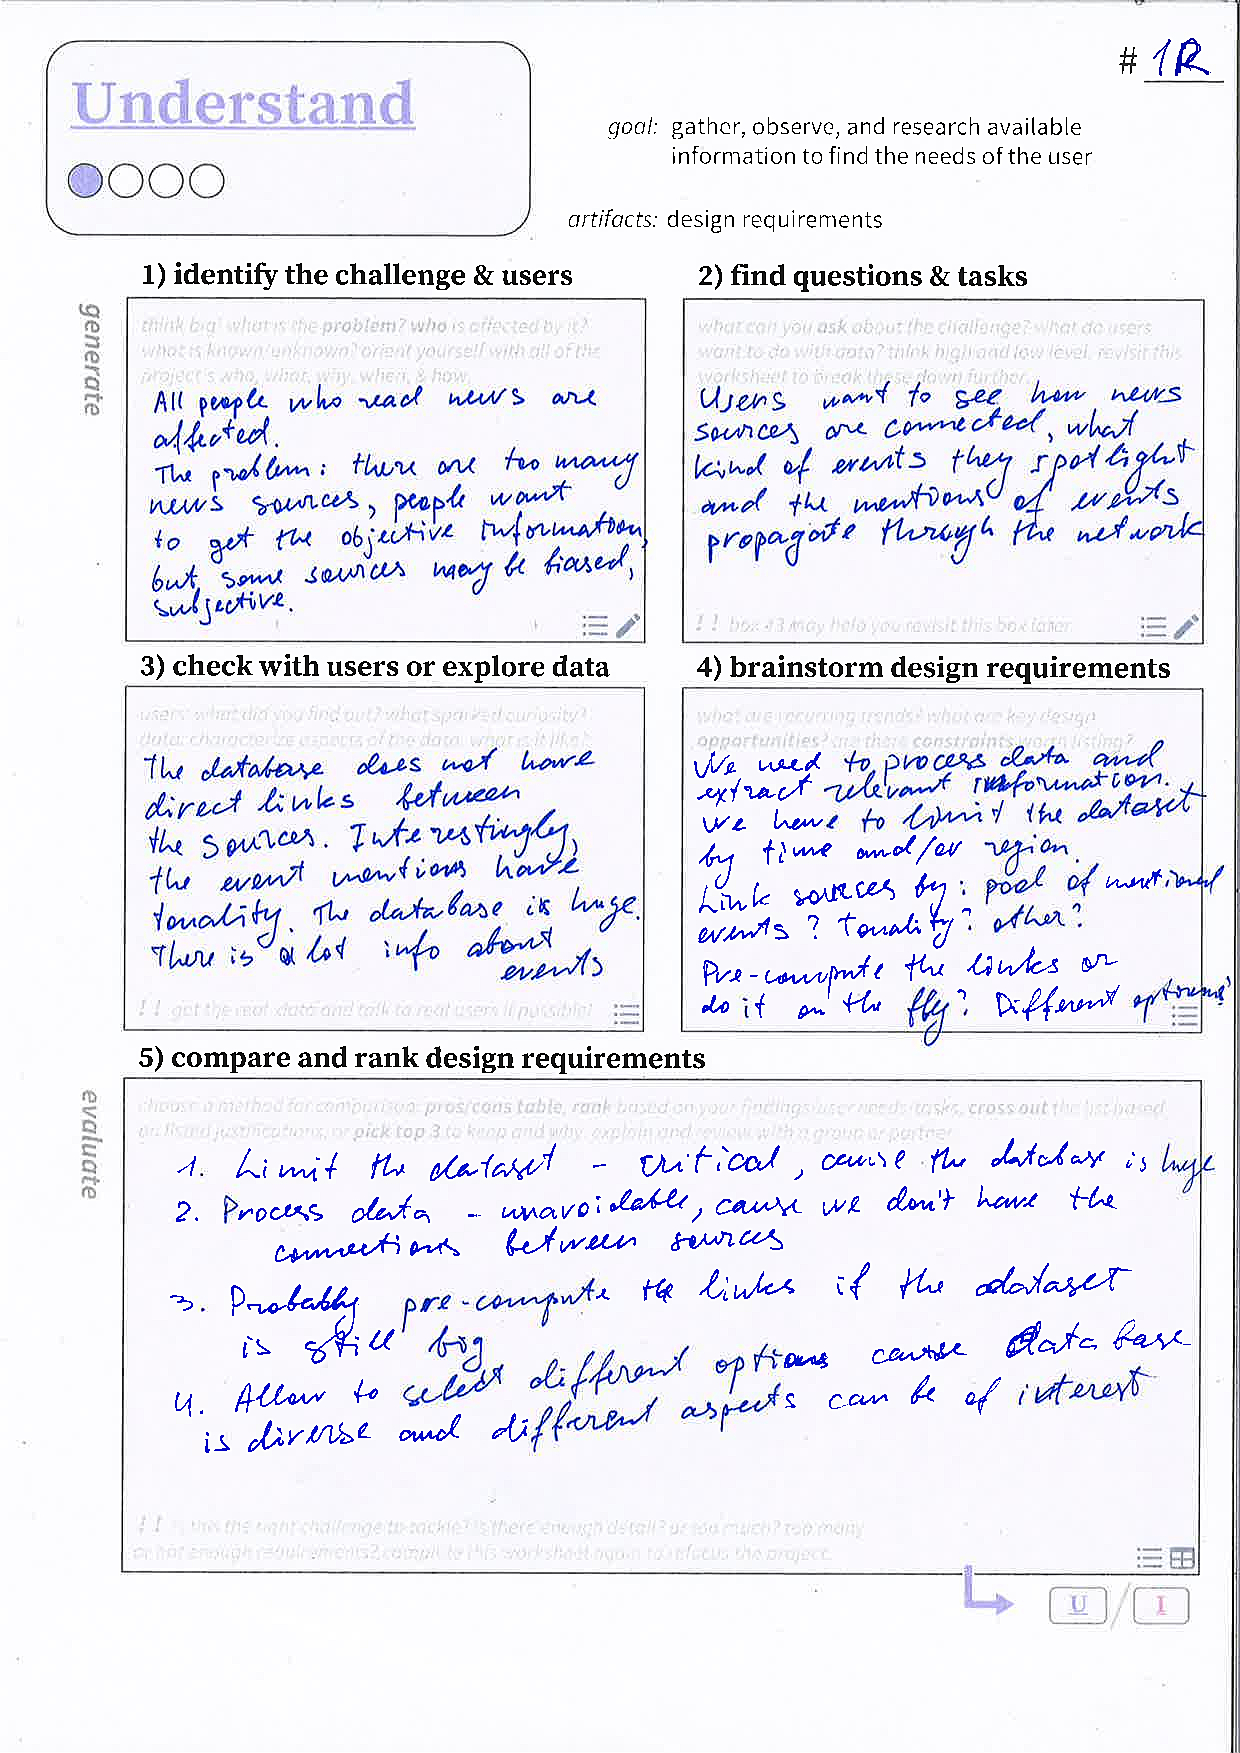 # 1R
Understand
goal: gather, observe, and research available
information to find the needs of the user
artifacts: design requirements
generate
1) identify the challenge & users
think big! what is the problem? who is affected by it?
what is known/unknown? orient yourself with all of the
project's who, what, why, when, & how.
All people who read news are
affected.
The problem: there are too many
news sources, people want
to get the objective information,
but some sources may be biased,
subjective.
2) find questions & tasks
what can you ask about the challenge? what do users
want to do with data? think high and low level, revisit this
worksheet to break these down further.
Users want to see how news
sources are connected, what
kind of events they spotlight
and the mentions of events
propagate through the network
!! box #3 may help you revisit this box later
3) check with users or explore data
users: what did you find out? what sparked curiosity?
data: characterize aspects of the data, what is it like?
The database does not have
direct links between
the sources. Interestingly,
the event mentions have
tonality. The database is huge.
There is a lot info about
events
!! get the real data and talk to real users if possible!
4) brainstorm design requirements
what are recurring trends? what are key design
opportunities? are there constraints worth listing?
We need to process data and
extract relevant information.
We have to limit the dataset
by time and/or region.
Link sources by: pool of mentioned
events? Tonality? other?
Pre-compute the links or
do it on the fly? Different options?
evaluate
5) compare and rank design requirements
choose a method for comparison: pros/cons table, rank based on your findings/user needs/tasks, cross out the list based
on listed justifications, or pick top 3 to keep and why. explain and review with a group or partner
1. Limit the dataset - critical, cause the database is huge
2. Process data - unavoidable, cause we don't have the
connections between sources
3. Probably pre-compute the links if the dataset
is still big
4. Allow to select different options cause database
is diverse and different aspects can be of interest
!! is this the right challenge to tackle? is there enough detail? or too much? too many
or not enough requirements? complete this worksheet again to refocus the project.
U / I